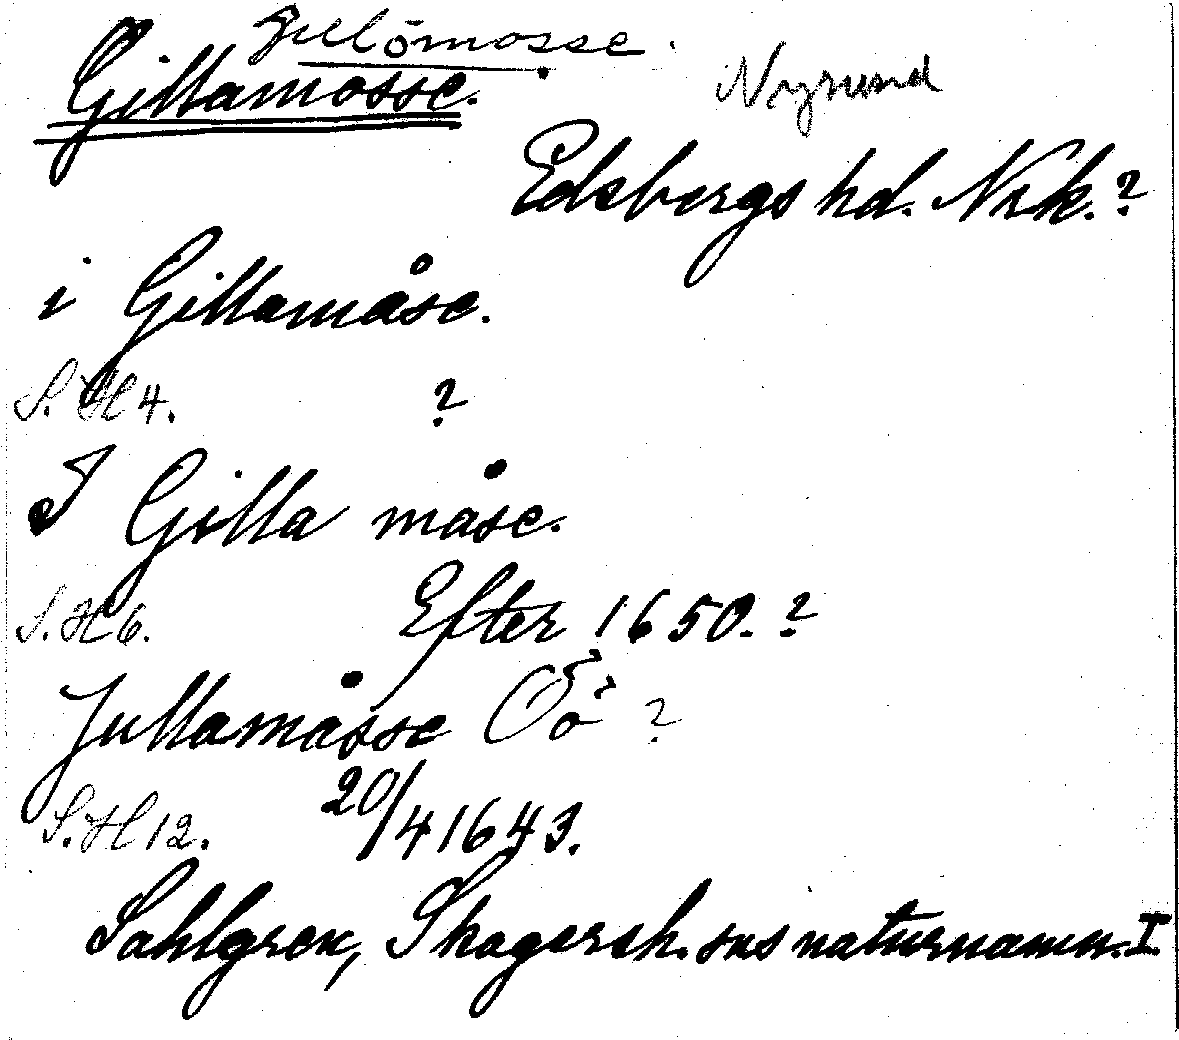 Gullömosse.
Gillamosse.
Nysund
Edsbergs hd. Nrk.?
i Gillamåse.
S. H 4. ?
I Gilla måse.
S. H 6. Efter 1650. ?
Jullamåsse Ö ?
S. H 12. 20/4 1643.
Sahlgren, Skagersh. sns naturnamn. I